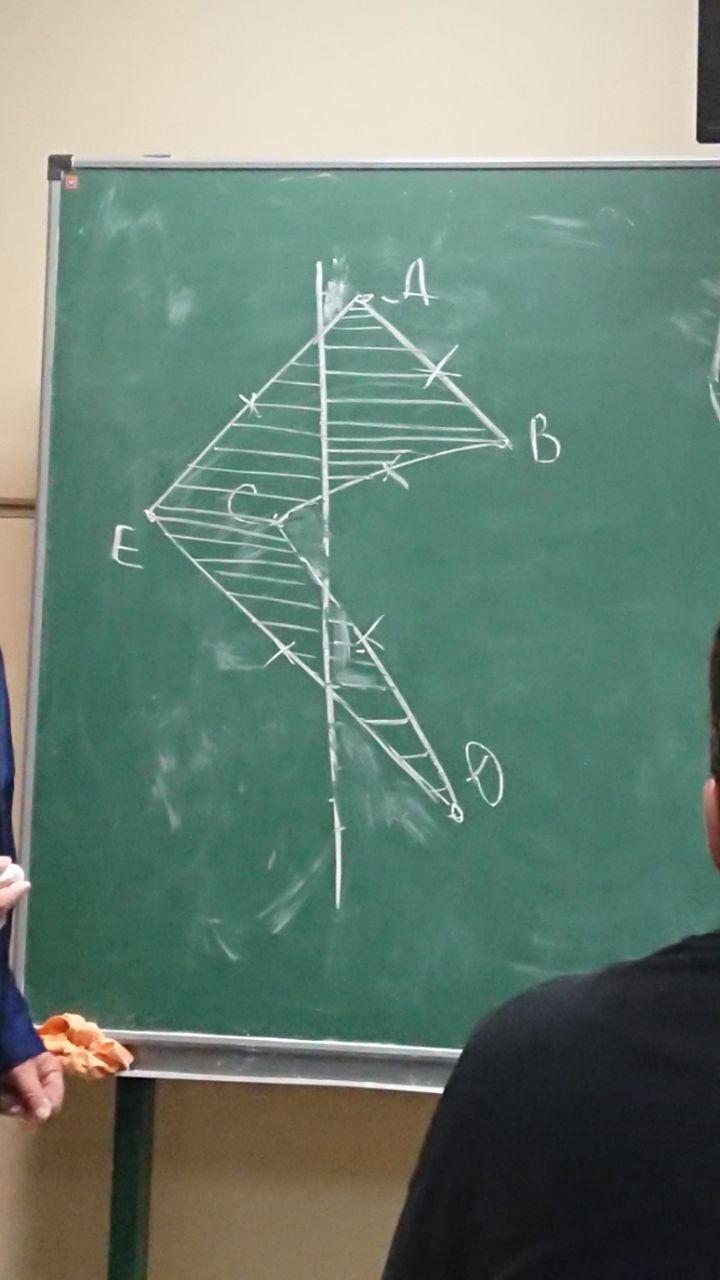 A
B
C
E
D